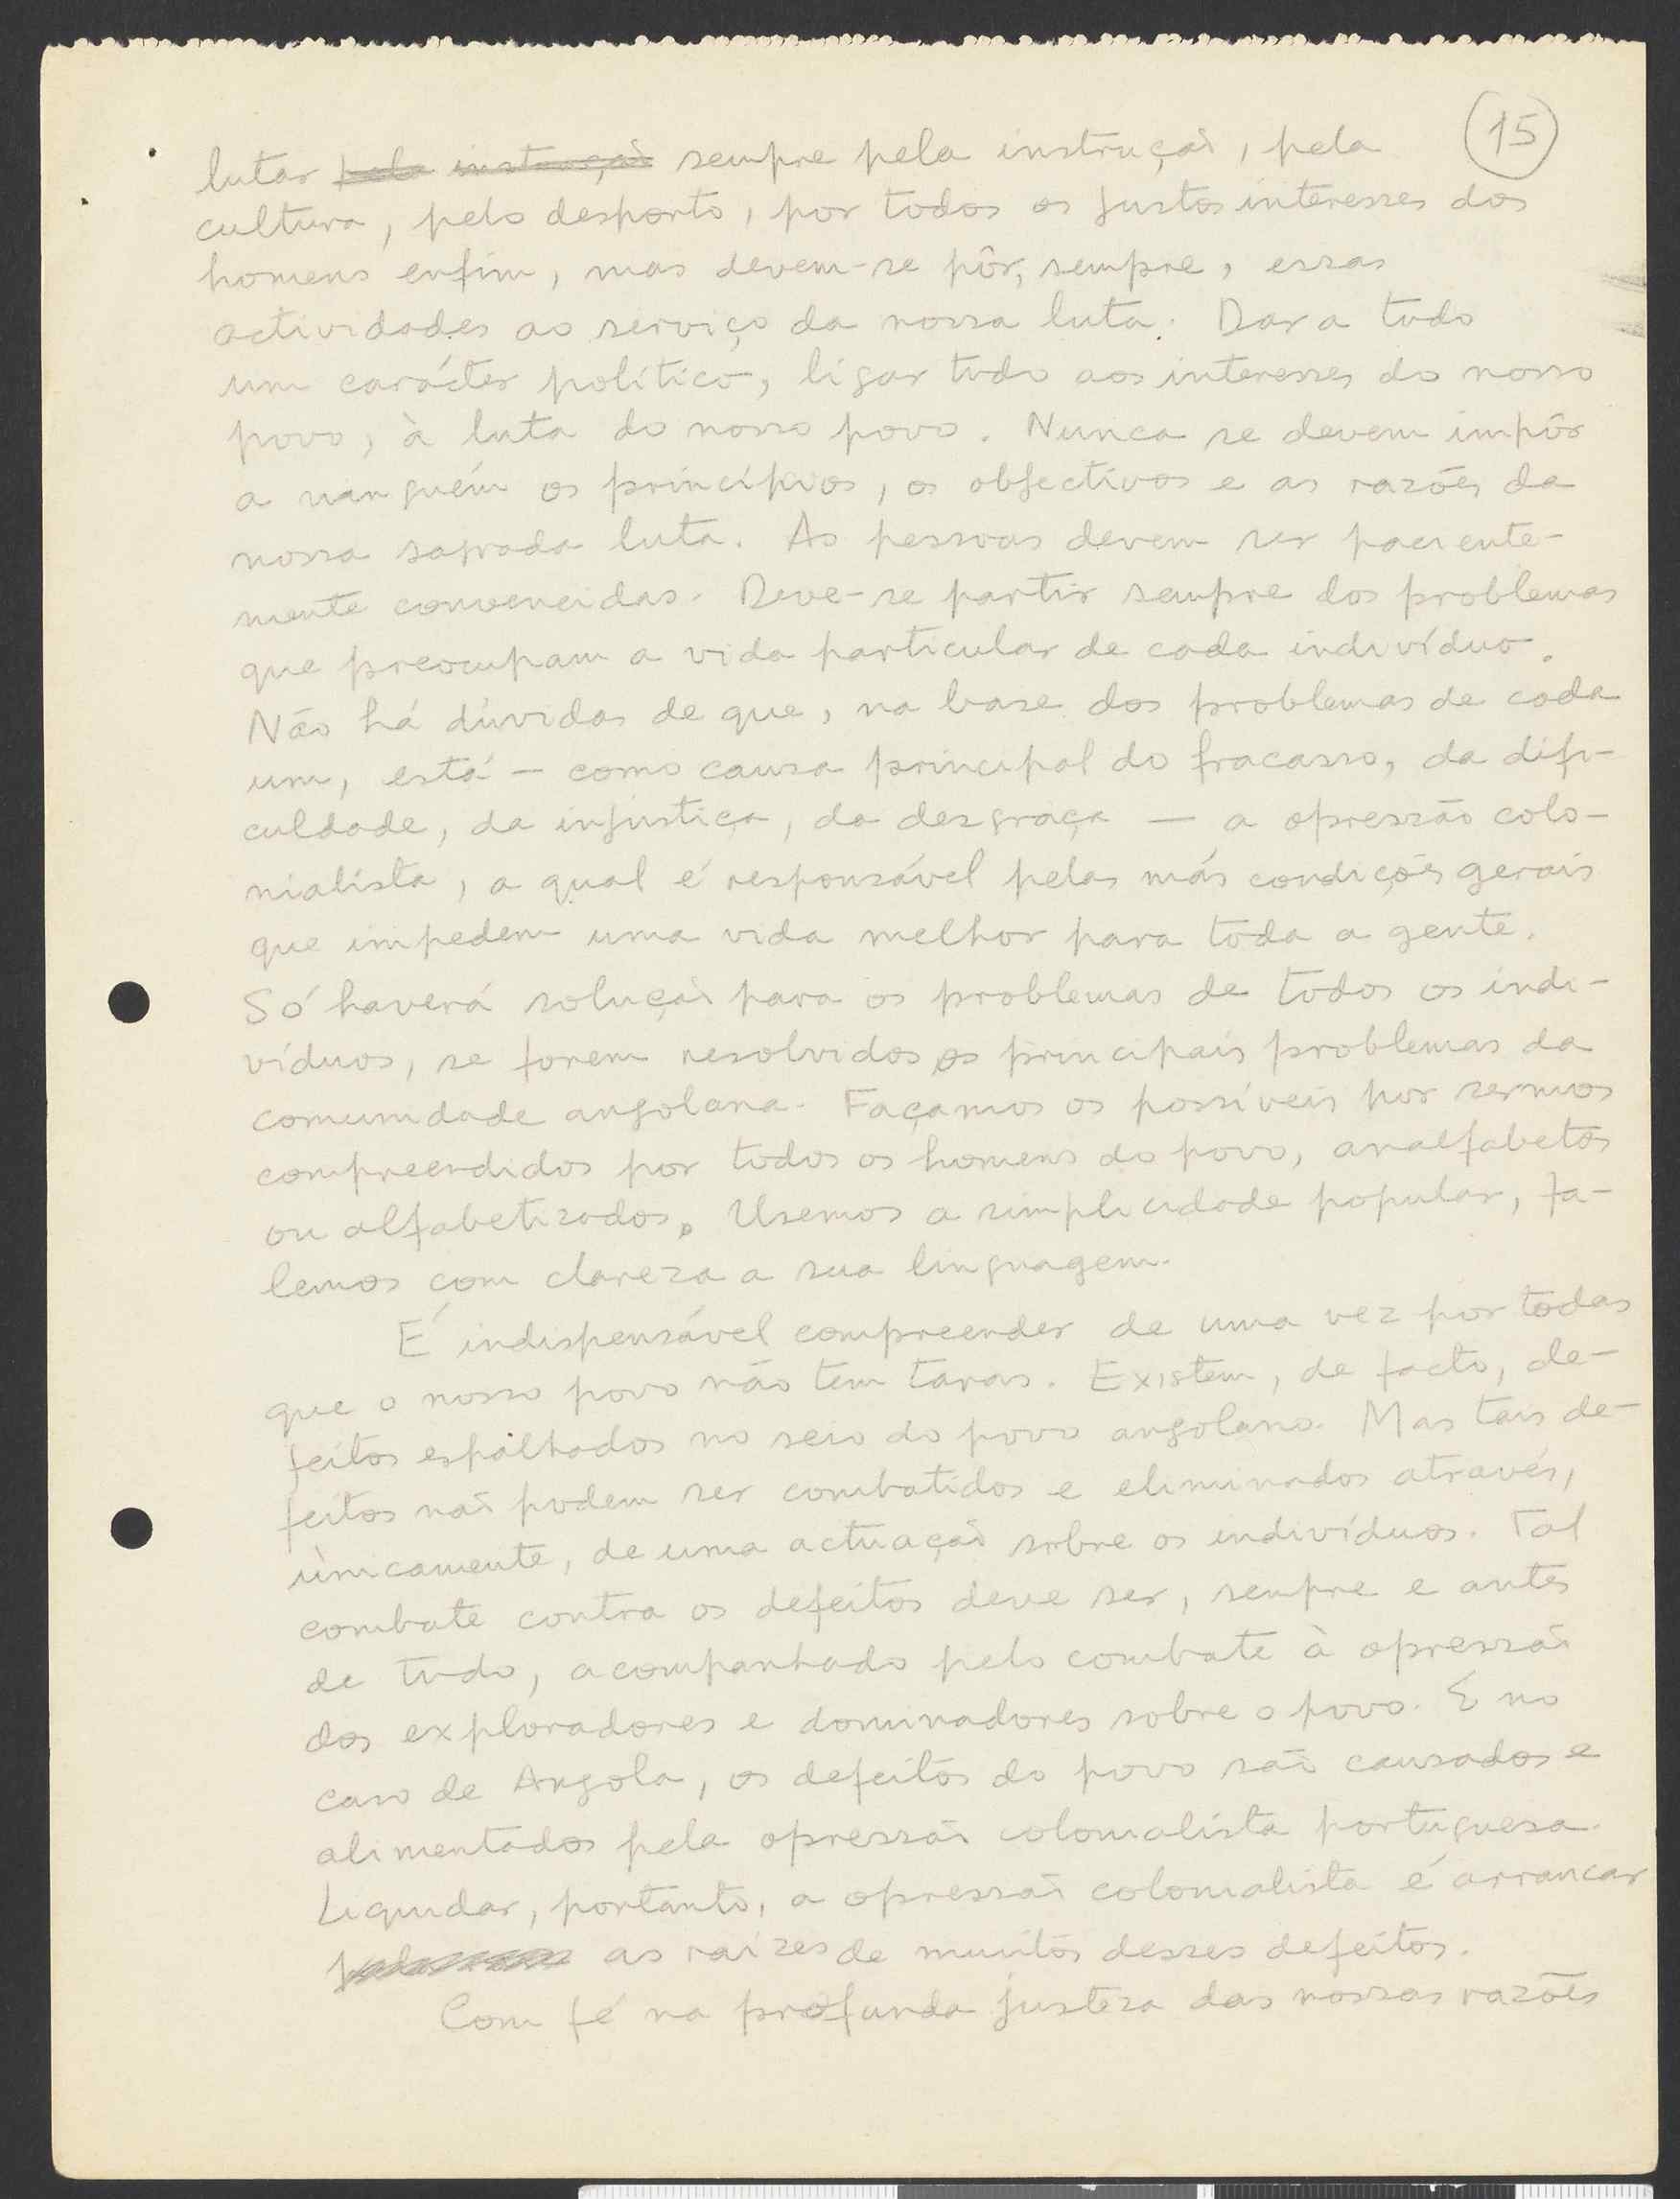 15
lutar pela instrução sempre pela instrução, pela
cultura, pelo desporto, por todos os justos interesses dos
homens enfim, mas devem-se pôr, sempre, essas
actividades ao serviço da nossa luta. Dar a tudo
um carácter político, ligar tudo aos interesses do nosso
povo, à luta do nosso povo. Nunca se devem impôr
a nanguém os princípios, os objectivos e as razões da
nossa sagrada luta. As pessoas devem ser paciente-
mente convencidas. Deve-se partir sempre dos problemas
que preocupam a vida particular de cada indivíduo.
Não há dúvidas de que, na base dos problemas de cada
um, está — como causa principal do fracasso, da difi-
culdade, da injustiça, da desgraça — a opressão colo-
nialista, a qual é responsável pelas más condições gerais
que impedem uma vida melhor para toda a gente.
Só haverá solução para os problemas de todos os indi-
víduos, se forem resolvidos os principais problemas da
comunidade angolana. Façamos os possíveis por sermos
compreendidos por todos os homens do povo, analfabetos
ou alfabetizados. Usemos a simplicidade popular, fa-
lemos com clareza a sua linguagem.
É indispensável compreender de uma vez por todas
que o nosso povo não tem taras. Existem, de facto, de-
feitos espalhados no seio do povo angolano. Mas tais de-
feitos não podem ser combatidos e eliminados através,
ùnicamente, de uma actuação sobre os indivíduos. Tal
combate contra os defeitos deve ser, sempre e antes
de tudo, acompanhado pelo combate à opressão
dos exploradores e dominadores sobre o povo. E no
caso de Angola, os defeitos do povo são causados e
alimentados pela opressão colonialista portuguesa.
Liquidar, portanto, a opressão colonialista é arrancar
as raízes de muitos desses defeitos.
Com fé na profunda justeza das nossas razões